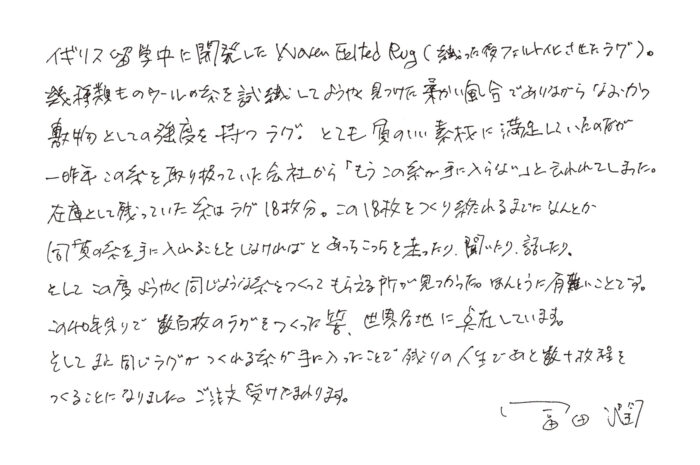 イギリス留学中に開発した Woven Felted Rug (織った後フェルト化させたラグ)。
幾種類ものウールの糸を試織してようやく見つけた柔かい風合でありながらなおかつ
敷物としての強度を持つラグ。とても質のいい素材に満足していたのだが
一昨年この糸を取り扱っていた会社から「もうこの糸が手に入らない」と云われてしまった。
在庫として残っていた糸はラグ18枚分。この18枚をつくり終れるまでになんとか
同質の糸を手に入れることをしなければとあっちこっちを走ったり、聞いたり、話したり。
そしてこの度ようやく同じような糸をつくってもらえる所が見つかった。ほんとうに有難いことです。
この40年余りで数百枚のラグをつくった筈、世界各地に点在しています。
そしてまた同じラグがつくれる糸が手に入ったことで残りの人生であと数十枚程を
つくることになりました。ご注文受けたまわります。
富田潤